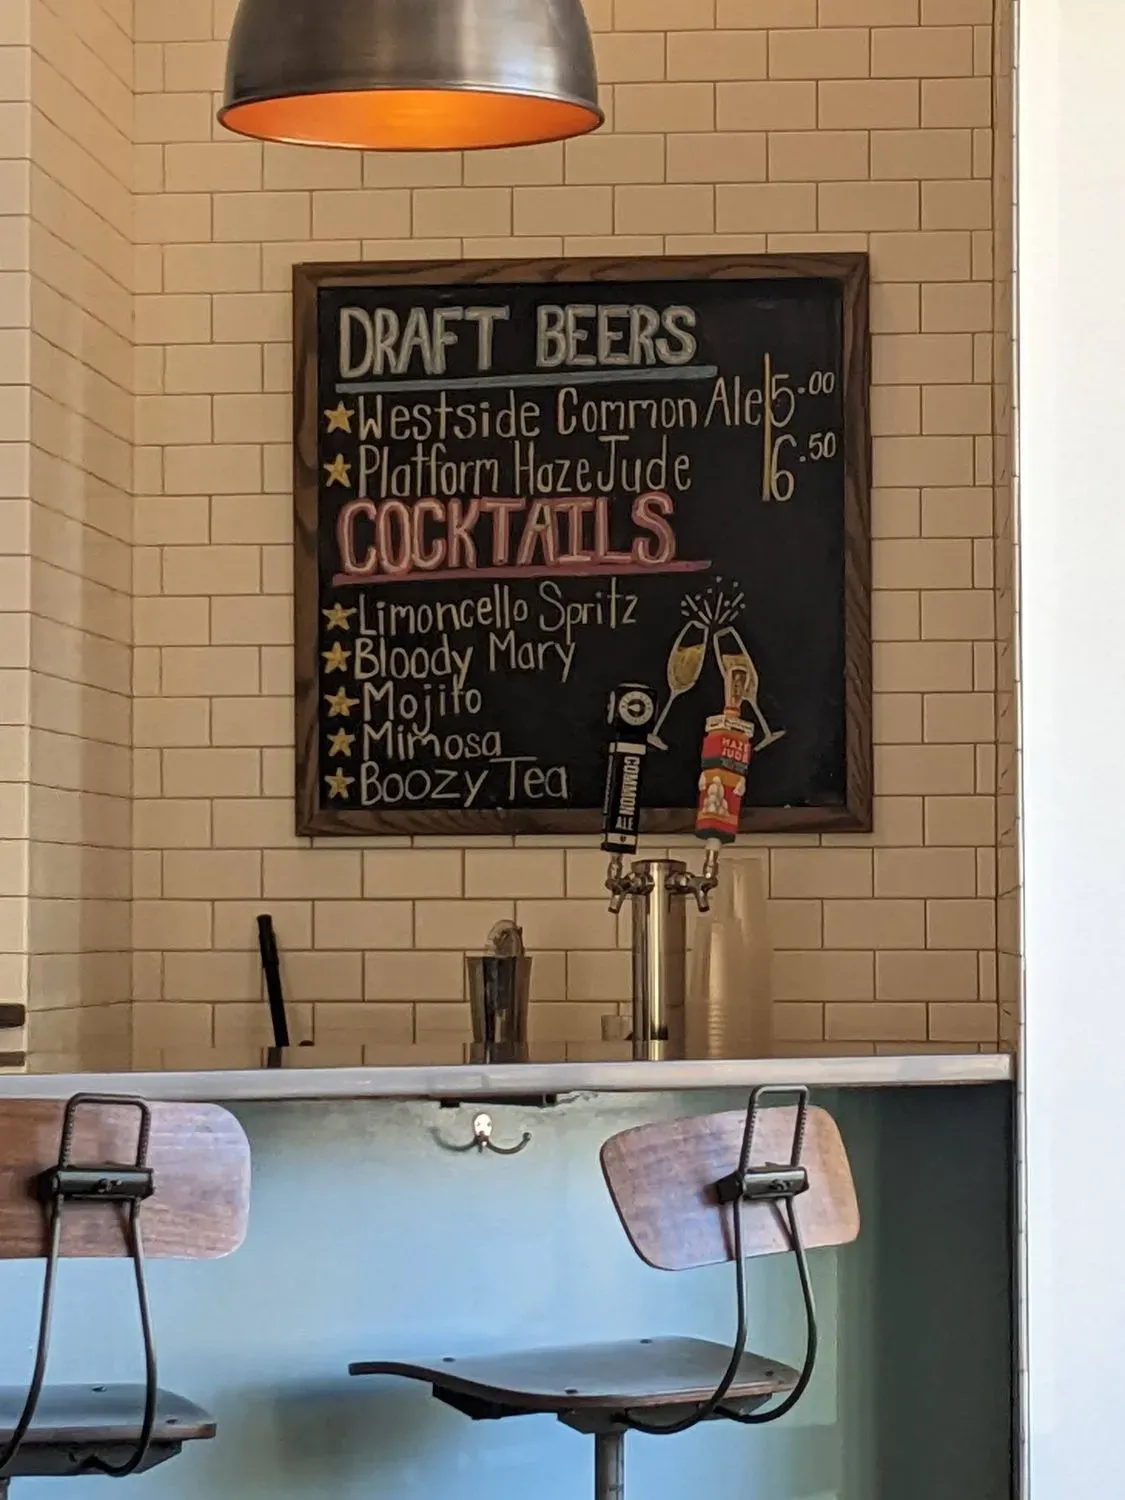 DRAFT BEERS
Westside Common Ale 5.00
Platform Haze Jude 6.50
COCKTAILS
Limoncello Spritz
Bloody Mary
Mojito
Mimosa
Boozy Tea
COMMON ALE
HAZE
JUDE